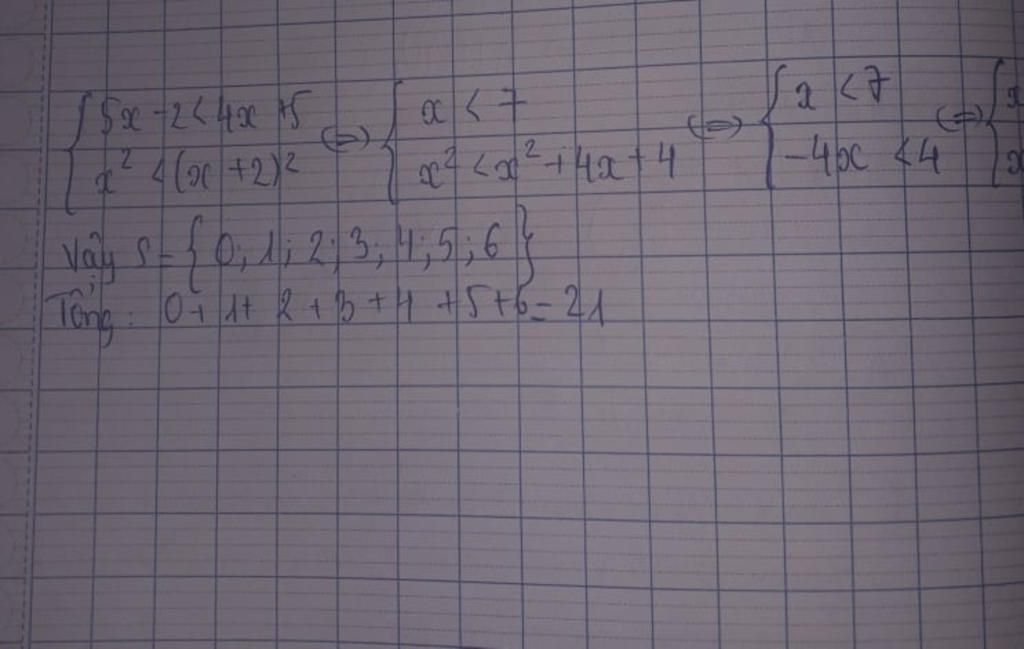 { 5x - 2 < 4x + 5 (=) { x < 7 (=) { x < 7 (=) { x
x² < (x + 2)² x² < x² + 4x + 4 -4x < 4 x
Vậy S = { 0; 1; 2; 3; 4; 5; 6 }
Tổng: 0 + 1 + 2 + 3 + 4 + 5 + 6 = 21